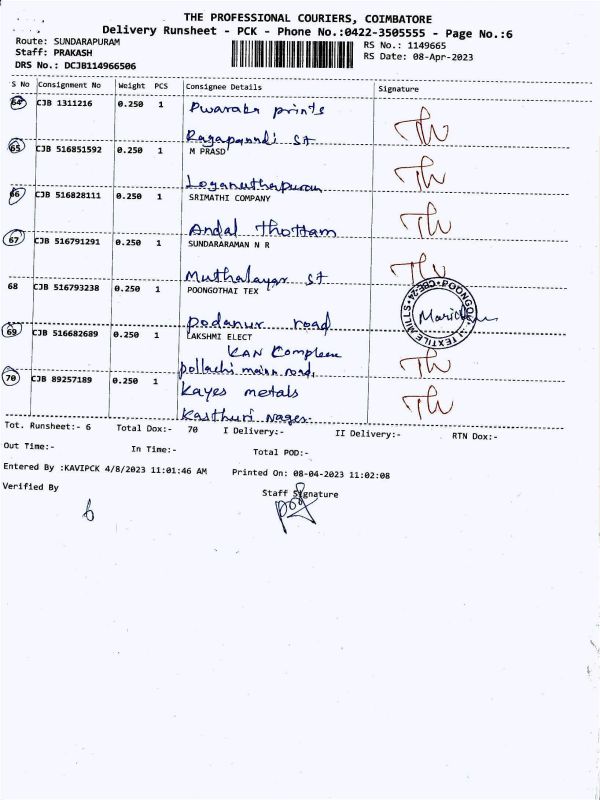 THE PROFESSIONAL COURIERS, COIMBATORE
Delivery Runsheet - PCK - Phone No.:0422-3505555 - Page No.:6
Route: SUNDARAPURAM
RS No.: 1149665
Staff: PRAKASH
RS Date: 08-Apr-2023
DRS No.: DCJB114966506
S No Consignment No Weight PCS Consignee Details Signature
64 CJB 1311216 0.250 1 Dwaraka prints
65 CJB 516851592 0.250 1 M PRASD
Loganathapuram
66 CJB 516828111 0.250 1 SRIMATHI COMPANY
Andal Thottam
67 CJB 516791291 0.250 1 SUNDARARAMAN N R
Muthalayar St
68 CJB 516793238 0.250 1 POONGOTHAI TEX
podanur road
69 CJB 516682689 0.250 1 LAKSHMI ELECT
KAN Complexe
pollachi main road,
70 CJB 89257189 0.250 1 Kayes metals
Kasthuri Nager.
Tot. Runsheet:- 6 Total Dox:- 70 I Delivery:- II Delivery:- RTN Dox:-
Out Time:- In Time:- Total POD:-
Entered By :KAVIPCK 4/8/2023 11:01:46 AM Printed On: 08-04-2023 11:02:08
Verified By Staff Signature
6